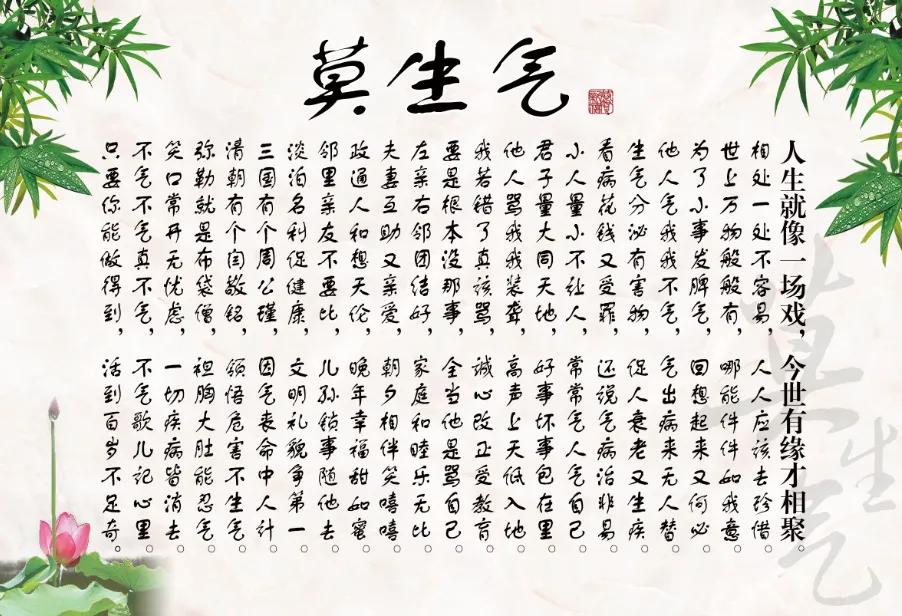 莫生气
人生就像一场戏，今世有缘才相聚。
相处一处不容易，人人应该去珍惜。
世上万物般般有，哪能件件如我意。
为了小事发脾气，回想起来又何必。
他人气我我不气，气出病来无人替。
生气分泌有害物，促人衰老又生疾。
看病花钱又受罪，还说气病治非易。
小人量小不让人，常常气人气自己。
君子量大同天地，好事坏事包在里。
他人骂我我装聋，高声上天低入地。
我若错了真该骂，诚心改正受教育。
要是根本没那事，全当他是骂自己。
左亲右邻团结好，家庭和睦乐无比。
夫妻互助又亲爱，朝夕相伴笑嘻嘻。
政通人和想天伦，晚年幸福甜如蜜。
邻里亲友不要比，儿孙锁事随他去。
淡泊名利促健康，文明礼貌争第一。
三国有个周公瑾，因气丧命中人计。
清朝有个闫敬铭，领悟危害不生气。
弥勒就是布袋僧，袒胸大肚能忍气。
笑口常开无忧虑，一切疾病皆消去。
不气不气真不气，不气歌儿记心里。
只要你能做得到，活到百岁不足奇。
莫生气